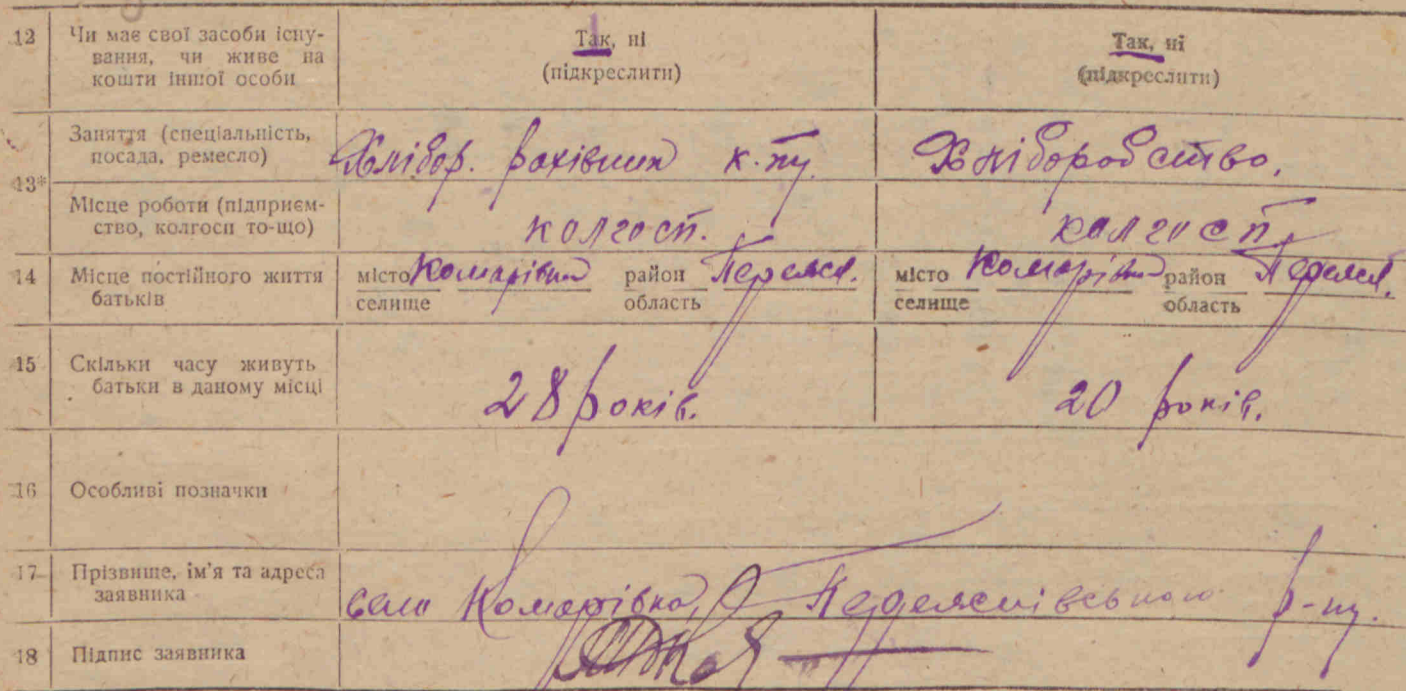 12 Чи має свої засоби існу-
вання, чи живе на
кошти іншої особи
Так, ні
(підкреслити)
Так, ні
(підкреслити)
13*
Заняття (спеціальність,
посада, ремесло)
Хлібор. к.
Хліборобство.
Місце роботи (підприєм-
ство, колгосп то-що)
колгосп.
колгосп
14 Місце постійного життя
батьків
місто Комарівка район Переясл.
селище область
місто Комарівка район Переясл.
селище область
15 Скільки часу живуть
батьки в даному місці
28 років.
20 років.
16 Особливі позначки
17 Прізвище, ім'я та адреса
заявника
село Комарівка, р-ну.
18 Підпис заявника